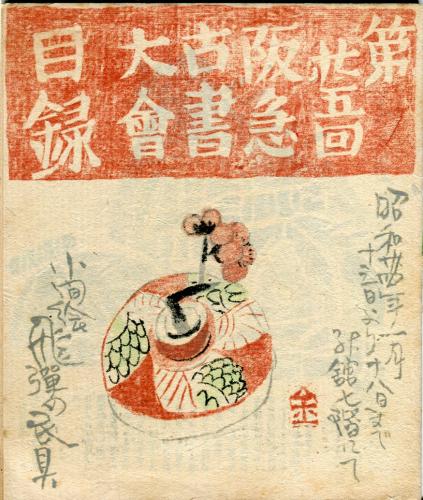 第
廿五回
阪急
古書
大會
目録
昭和廿年月
十三日より十八日まで
舘七階にて
小間絵
飛彈の民具